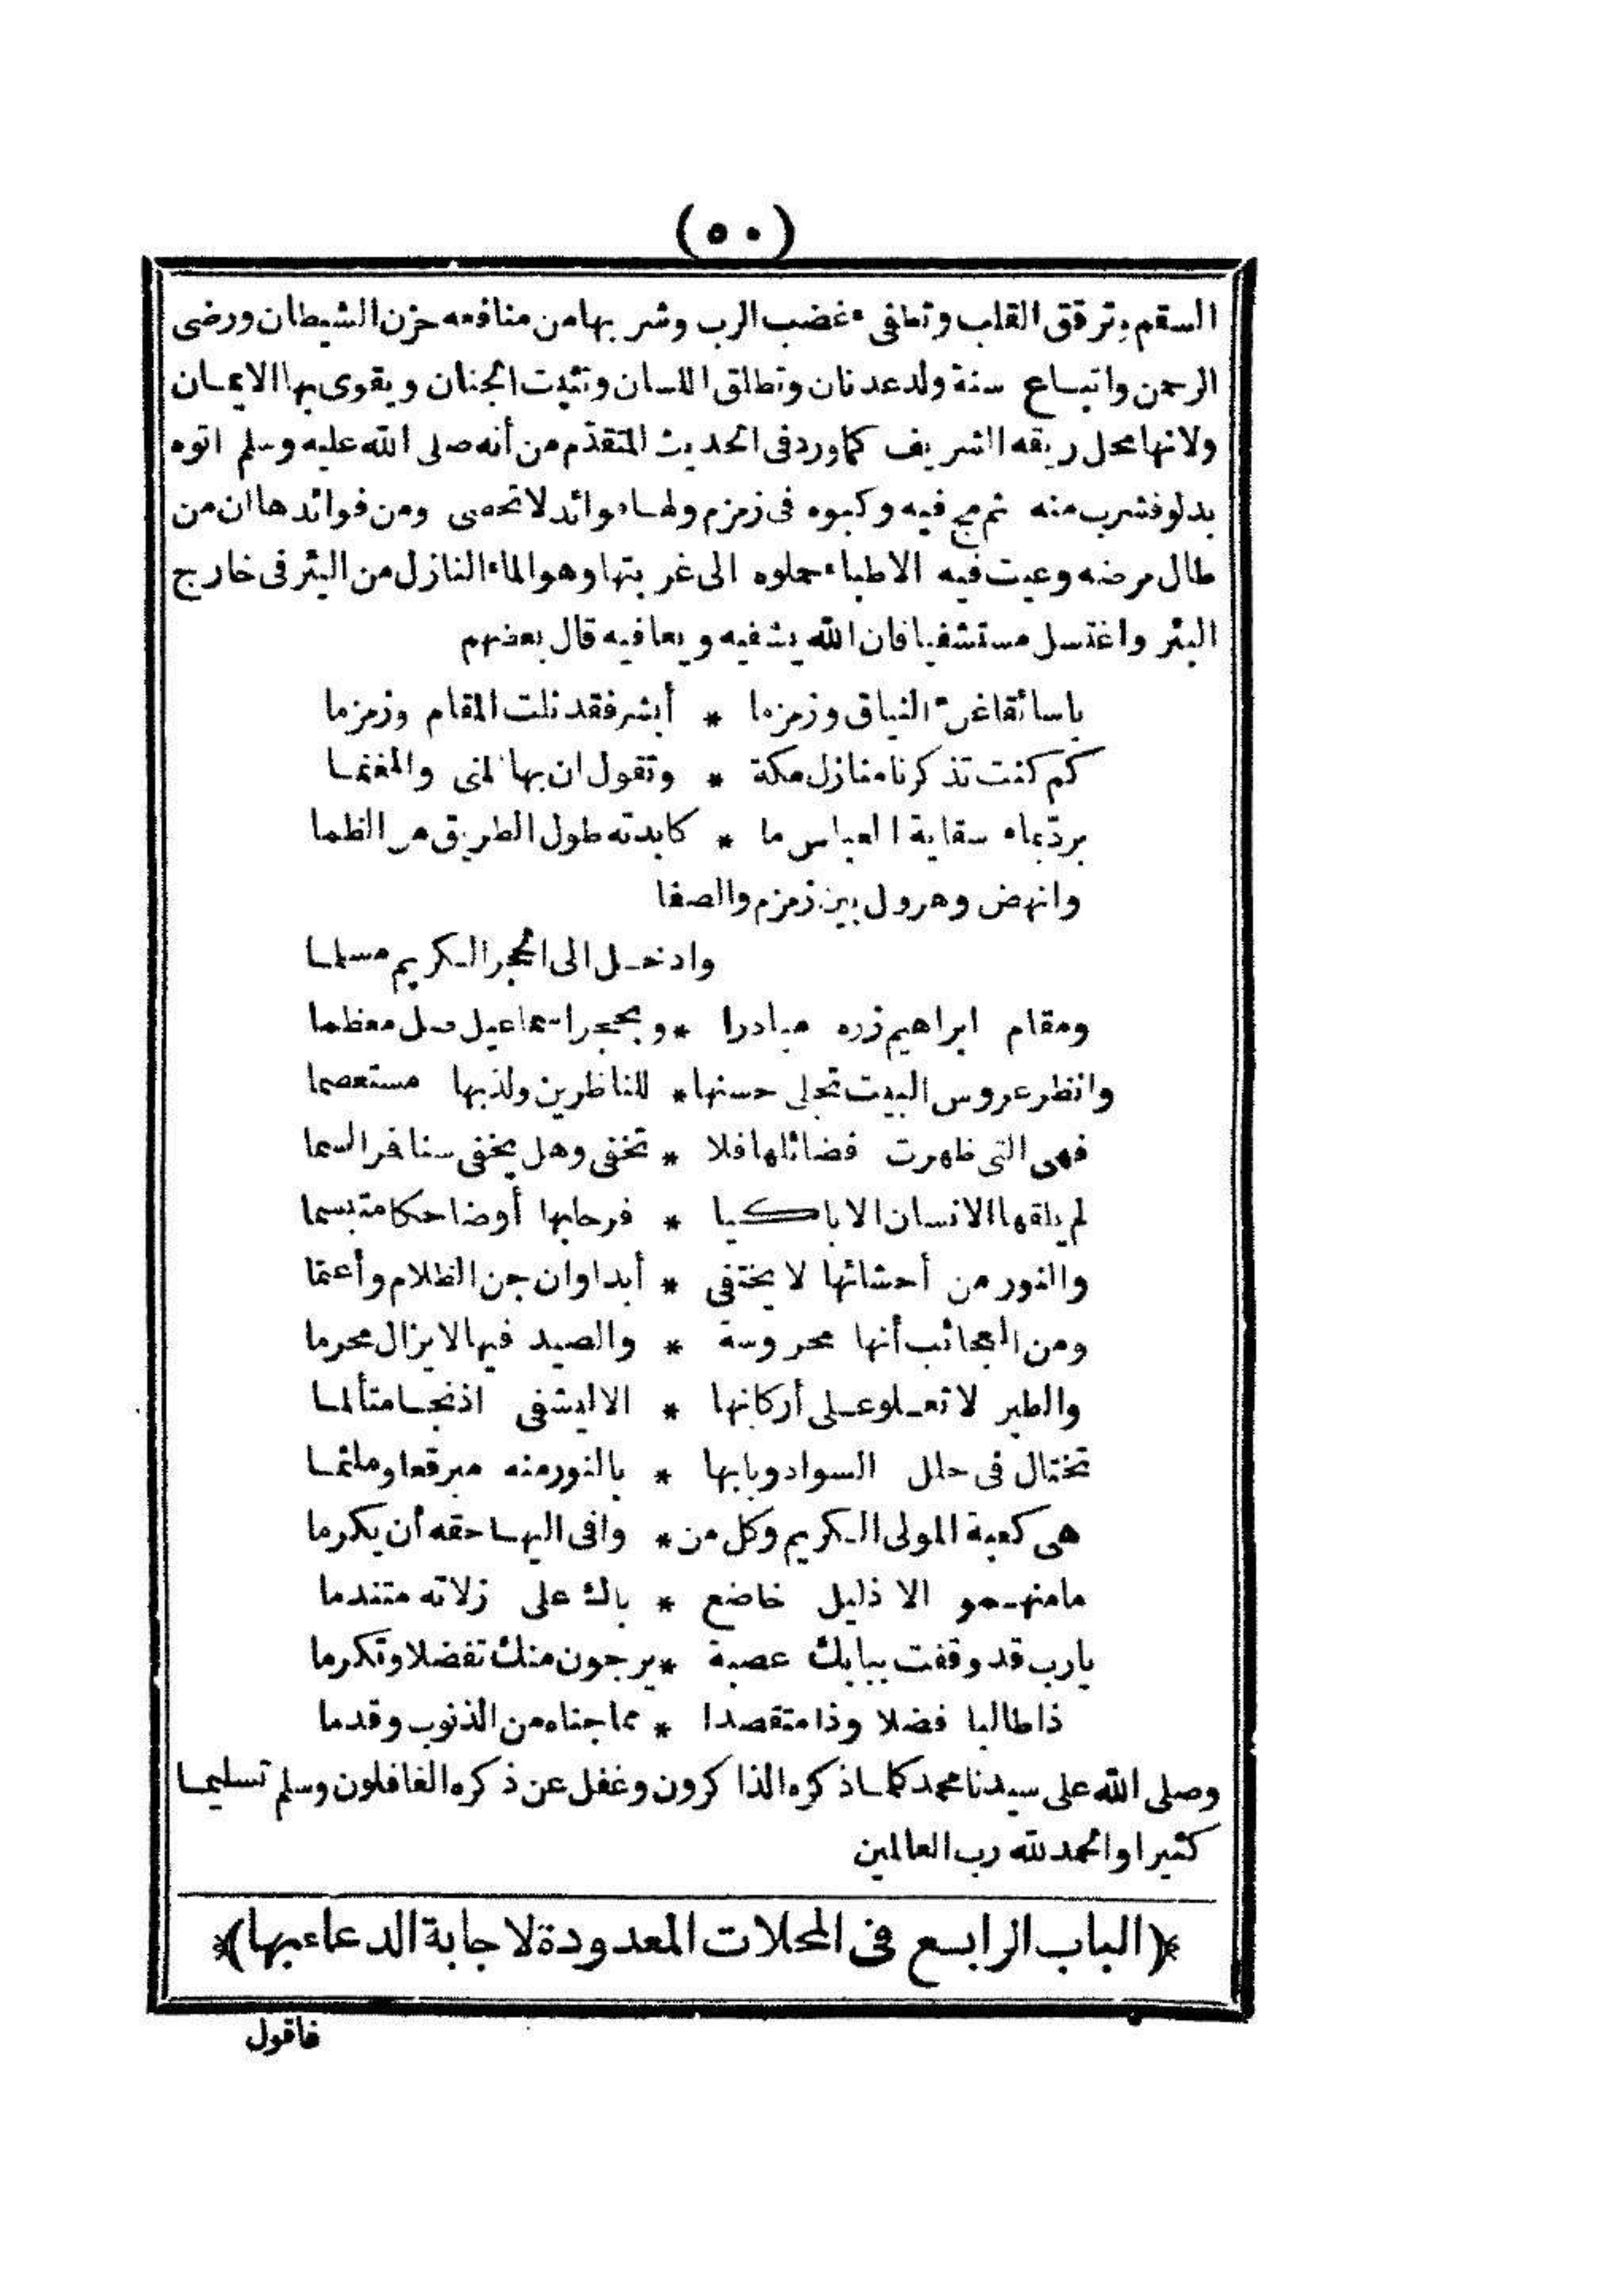 (٥٠)
السقم وترقق القلب وتطفى غضب الرب وشربها من منافعه حزن الشيطان ورضى
الرحمن واتباع سنة ولد عدنان وتطلق اللسان وتثبت الجنان ويقوى بها الايمان
ولانها محل ريقه الشريف كما ورد فى الحديث المتقدّم من أنه صلى الله عليه وسلم اتوه
بدلو فشرب منه ثم مج فيه وكبوه فى زمزم ولها فوائد لا تحصى ومن فوائدها ان من
طال مرضه وعيت فيه الاطباء حملوه الى غربتها وهو الماء النازل من البئر فى خارج
البئر واغتسل مستشفيا فان الله يشفيه ويعافيه قال بعضهم
ياسائقا النياق وزمزما * أبشر فقد نلت المقام وزمزما
كم كنت تذكرنا منازل مكة * وتقول ان بها المنى والمغنما
بردّ بماء سقاية العباس ما * كابدته طول الطريق من الظما
وانهض وهرول بين زمزم والصفا
وادخل الى الحجر الكريم مسلما
ومقام ابراهيم زره مبادرا * وبحجر اسماعيل صل معظما
وانظر عروس البيت تجلى حسنها * للناظرين ولذ بها مستعصما
فهى التى ظهرت فضائلها فلا * تخفى وهل يخفى سنا قمر السما
لم يلقها الانسان الا باكيا * فرحا بها أو ضاحكا متبسما
والنور من أحشائها لا يختفى * أبدا وان جن الظلام وأعتما
ومن العجائب أنها محروسة * والصيد فيها لا يزال محرما
والطير لا تعلو على أركانها * الا ليشفى اذ متألما
تختال فى حلل السواد وبابها * بالنور منه مبرقعا وملثما
هى كعبة المولى الكريم وكل من * وافى اليها حقه أن يكرما
ما منهمو الا ذليل خاضع * باك على زلاته متندما
يارب قد وقفت ببابك عصبة * يرجون منك تفضلا وتكرما
ذا طالبا فضلا وذا متقصدا * مما جناه من الذنوب وقدما
وصلى الله على سيدنا محمد كلما ذكره الذاكرون وغفل عن ذكره الغافلون وسلم تسليما
كثيرا والحمد لله رب العالمين
﴿الباب الرابع فى المحلات المعدودة لاجابة الدعاء بها﴾
فاقول